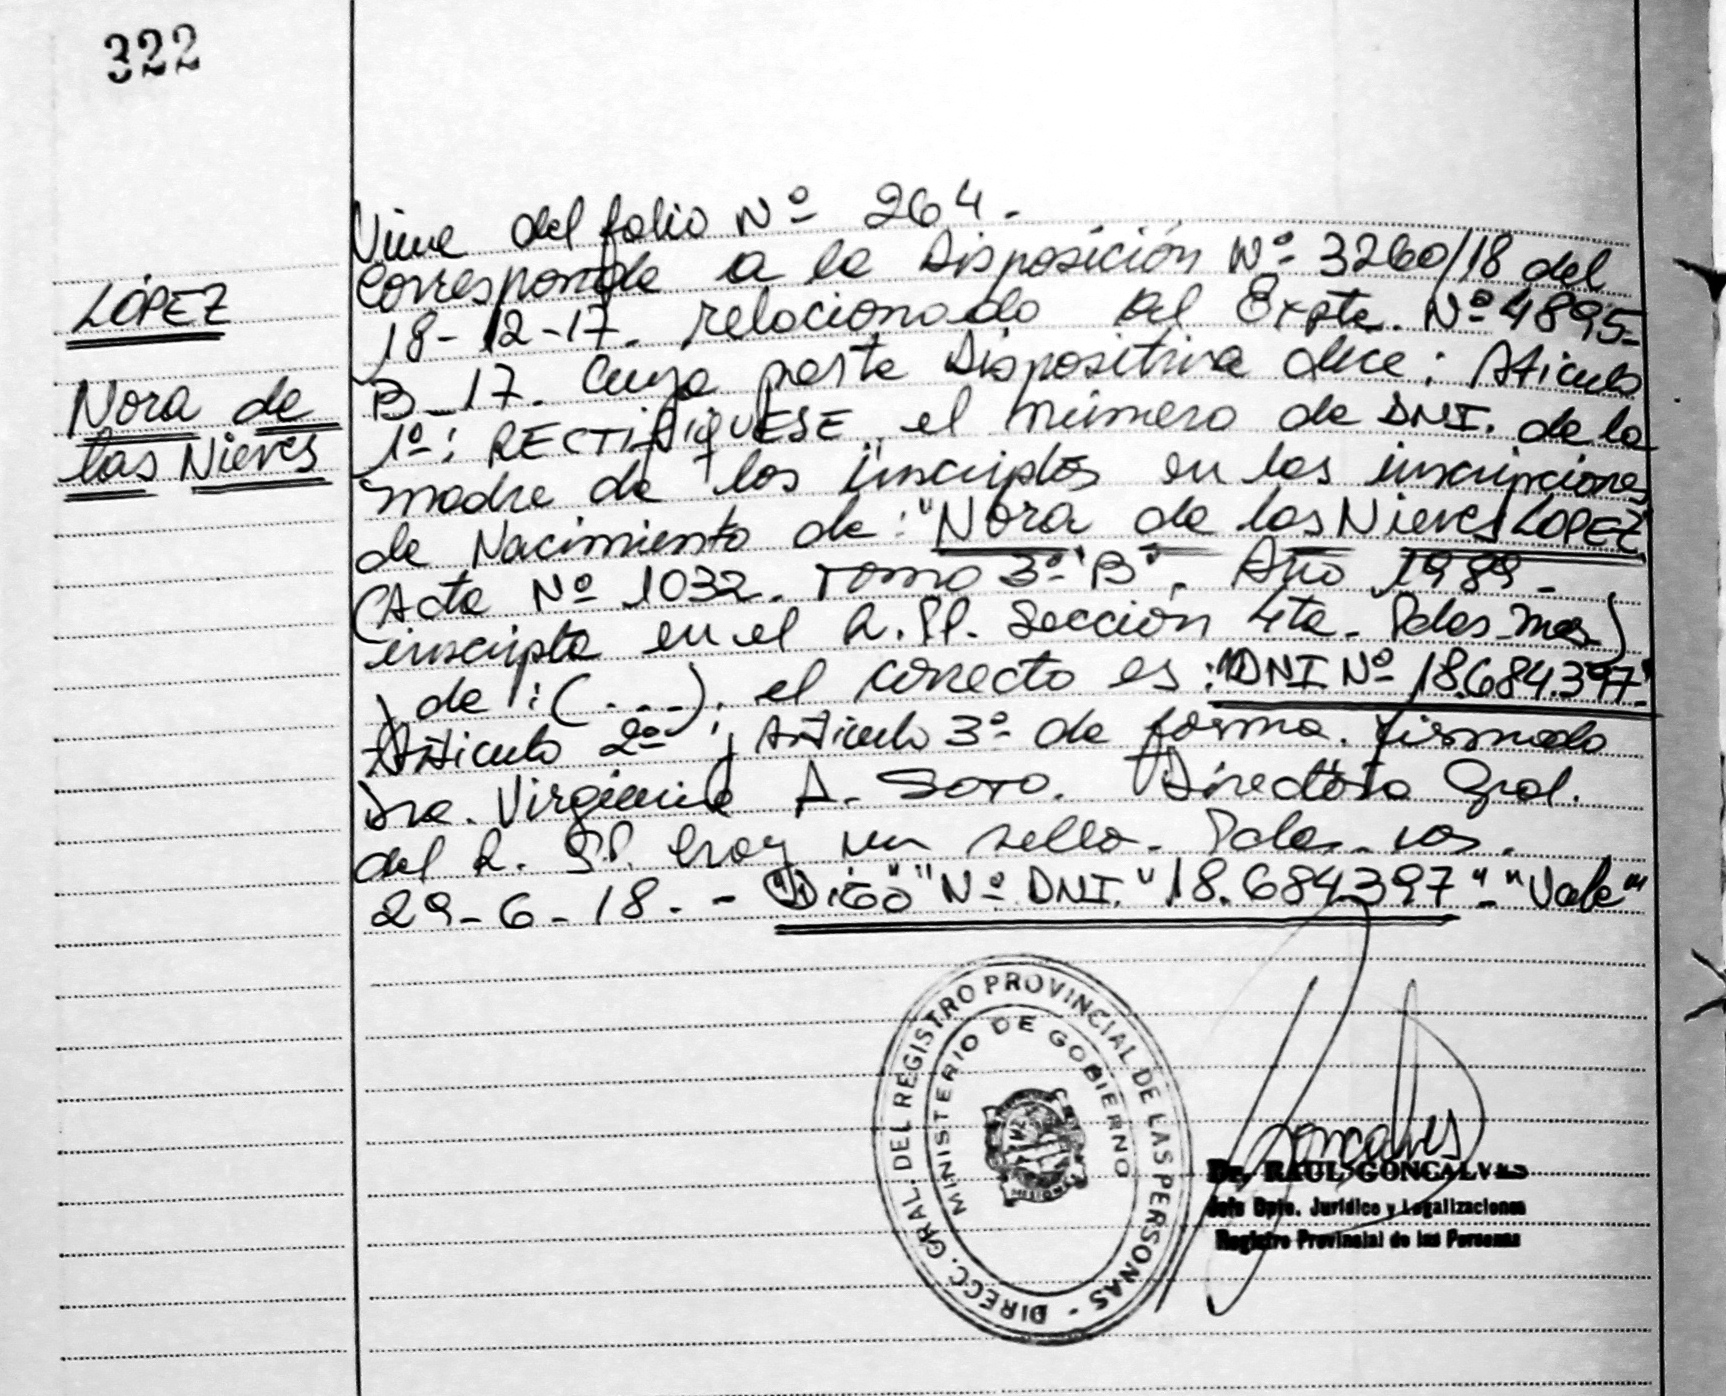 322
LÓPEZ
Nora de
las Nieves
Viene del folio Nº 264.
Corresponde a la Disposición Nº 3260/18 del
18-12-17. relacionado al Expte. Nº 4895-
B-17. Cuya parte Dispositiva dice: Aticulo
1º: RECTIFIQUESE el número de DNI. de la
madre de los inscriptos en las inscripciones
de Nacimiento de: "Nora de las Nieves LOPEZ"
(Acta Nº 1032. Tomo 3º "B". Año 1989-
inscripta en el R.PP. Sección 4ta. Pdas-Mnes)
de:(...). el correcto es: "DNI Nº 18.684.397"
Articulo 2º y Articulo 3º de forma. Firmado
Dra. Virginia A. SOTO. Directora Gral.
del R. PP. hay un sello. Pdas.
29-6-18.- "Digo" "Nº DNI. "18.684397"- "Vale"
DIRECC. GRAL. DEL REGISTRO PROVINCIAL DE LAS PERSONAS -
MINISTERIO DE GOBIERNO
MISIONES
Goncalves
Dr. RAUL GONCALVES
Jefe Dpto. Jurídico y Legalizaciones
Registro Provincial de las Personas